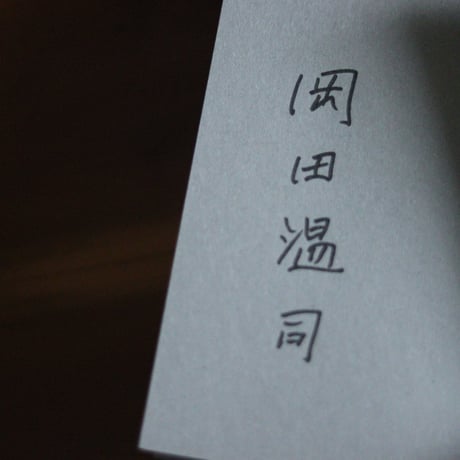 岡田温司